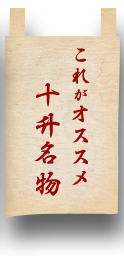 これがオススメ
十升名物